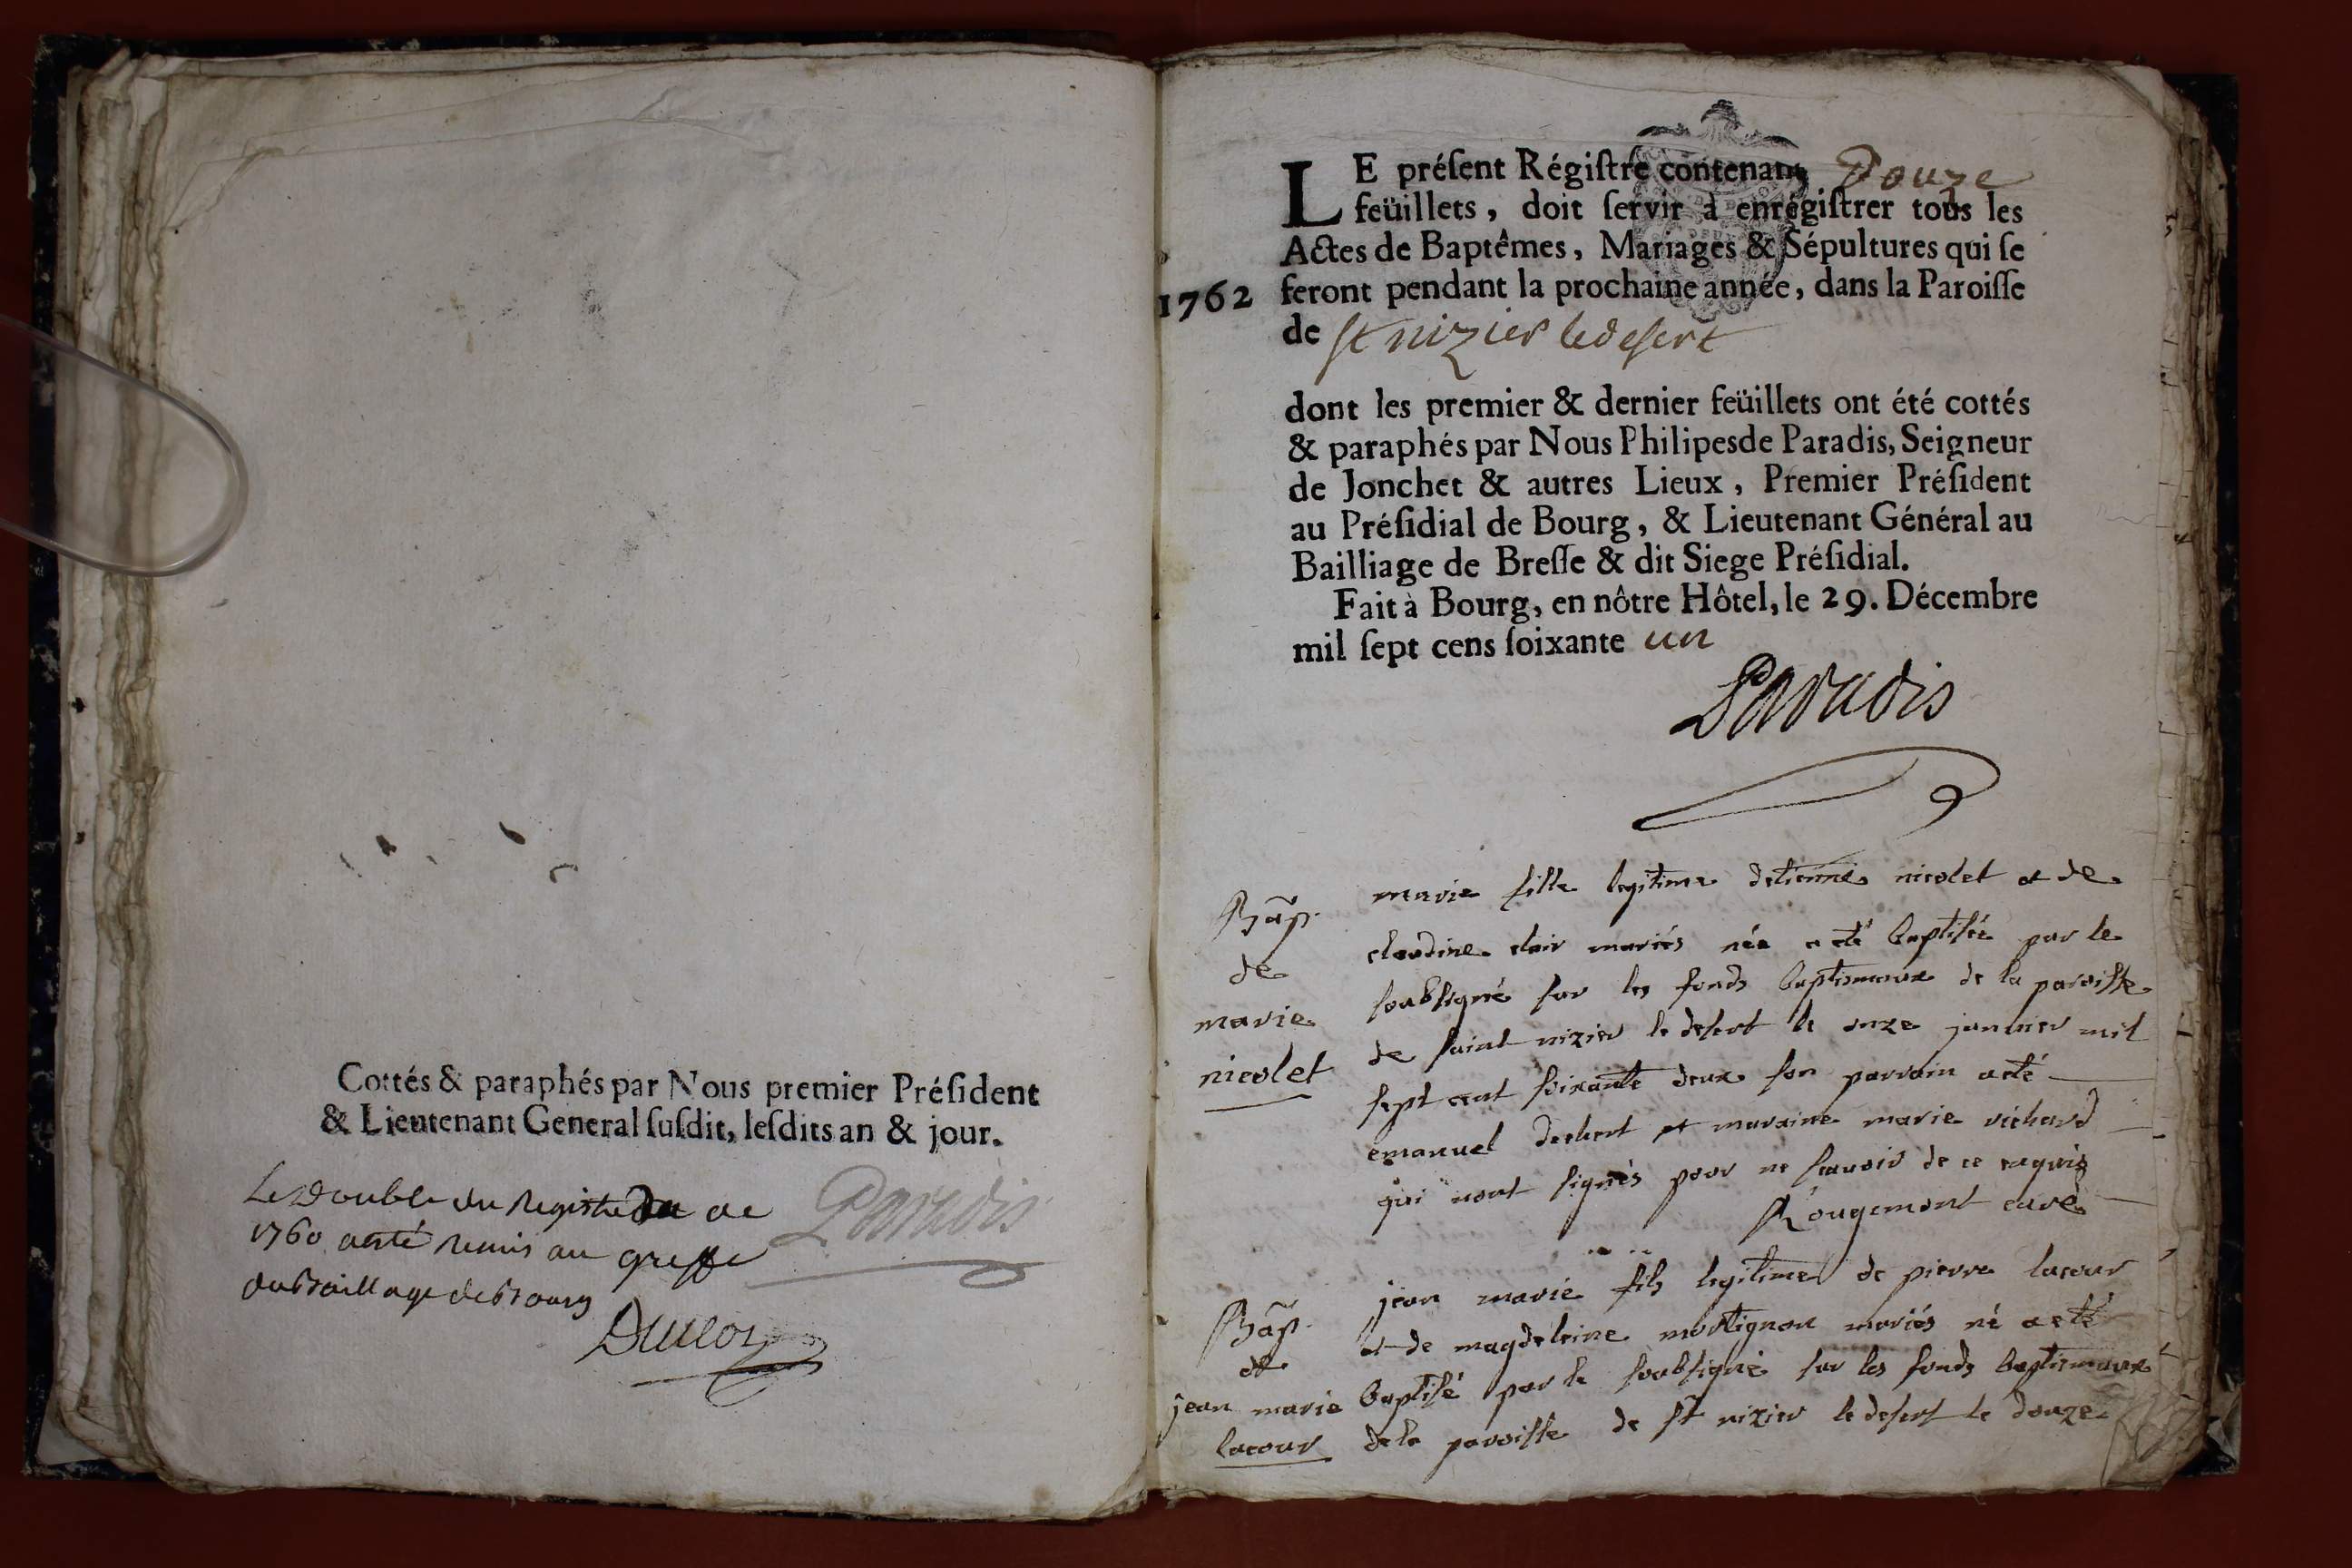 Cottés & paraphés par Nous premier Préſident
& Lieutenant General ſuſdit, leſdits an & jour.
Le Double du Registre de
1760 a esté Remis au greffe
du Baillage de Bourg
Paradis
LE préſent Régiſtre contenant Douze
feüillets, doit ſervir à enrégiſtrer tous les
Actes de Baptêmes, Mariages & Sépultures qui ſe
1762 feront pendant la prochaine année, dans la Paroiſſe
de ſt nizier le deſert
dont les premier & dernier feüillets ont été cottés
& paraphés par Nous Philipes de Paradis, Seigneur
de Jonchet & autres Lieux, Premier Préſident
au Préſidial de Bourg, & Lieutenant Général au
Bailliage de Breſſe & dit Siege Préſidial.
Fait à Bourg, en nôtre Hôtel, le 29. Décembre
mil ſept cens ſoixante un
Paradis
Bap.
de
marie
nicolet
marie fille legitime detienne nicolet et de
claudine clair mariés née a eté baptiſée par le
ſoubſigné ſur les fonds baptismaux de la paroiſſe
de ſaint nizier le deſert le onze janvier mil
ſept cent ſoixante deux ſon parrain a eté
emanuel et maraine marie richard
qui n'ont ſignés pour ne ſcavoir de ce requis
Rougemont curé
Bap.
de
jean marie
lacour
jean marie fils legitime de pierre lacour
et de magdeleine mortignon mariés né a eté
baptiſé par le ſoubſigné ſur les fonds baptismaux
de la paroiſſe de ſt nizier le deſert le douze